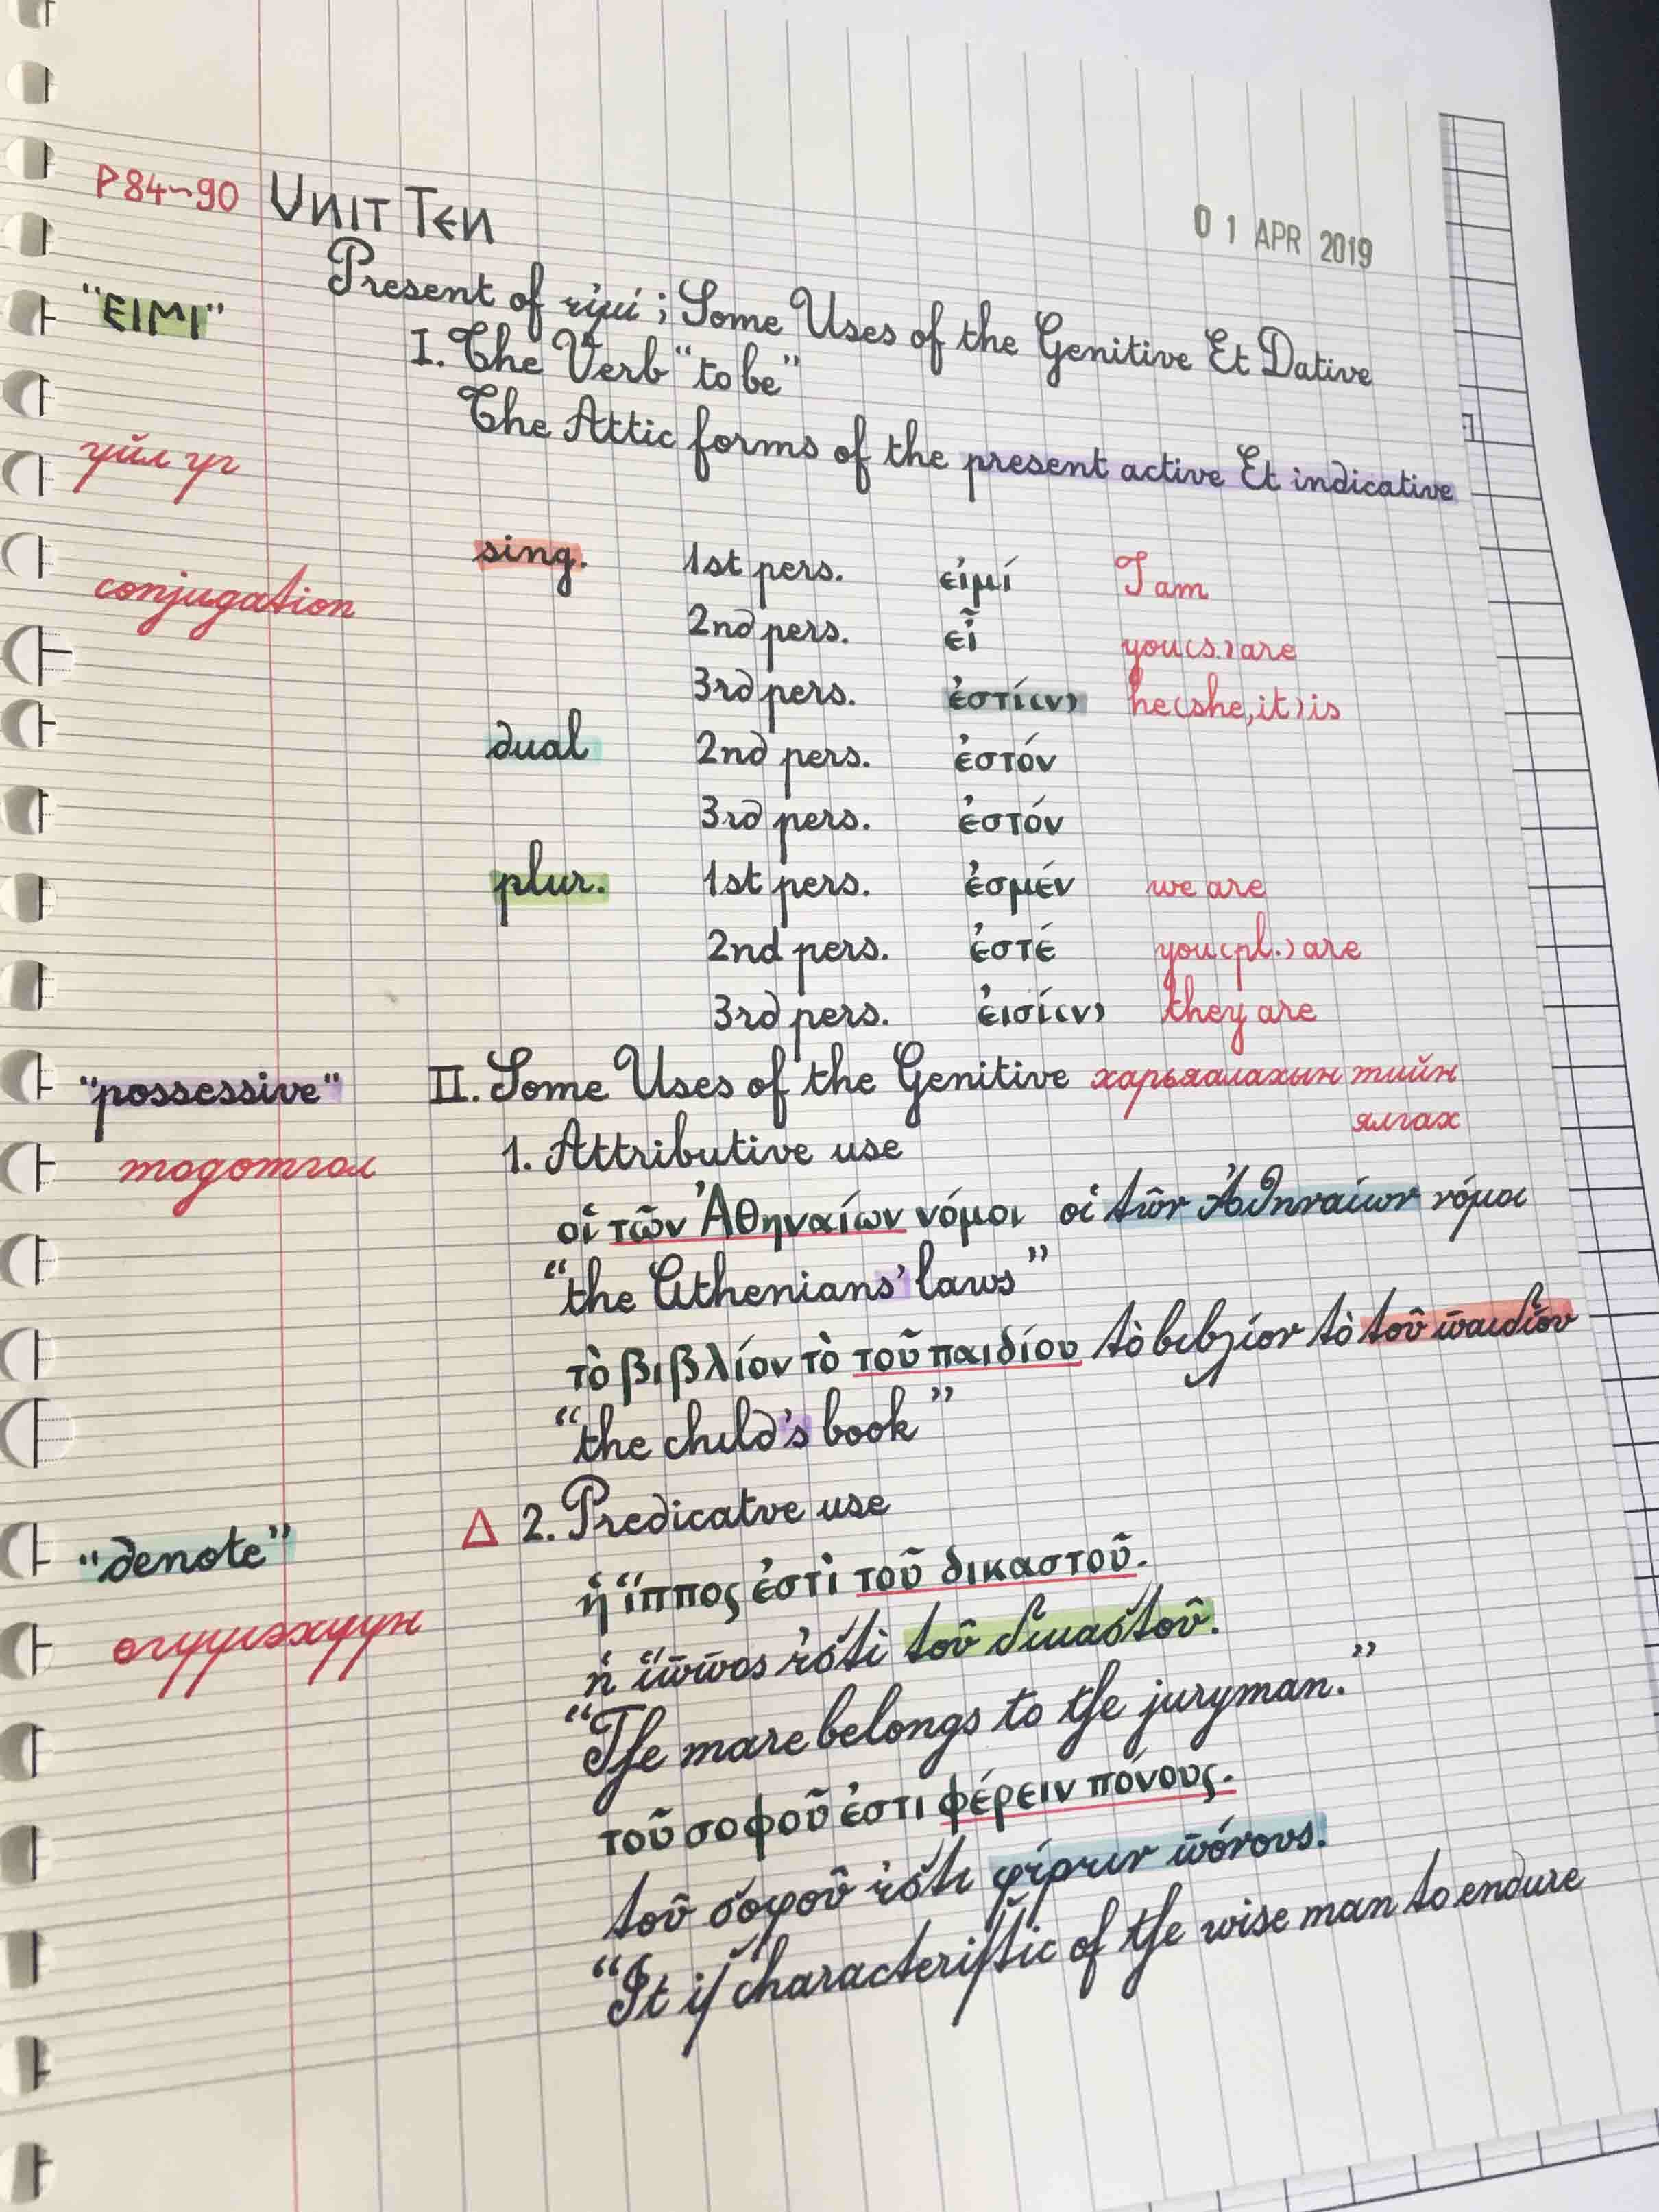 P84~90 UNIT TEN
01 APR 2019
"EIMI" Present of εἰμί; Some Uses of the Genitive Et Dative
I. The Verb "to be"
үйл үг The Attic forms of the present active Et indicative
conjugation sing. 1st pers. εἰμί I am
2nd pers. εἶ you(s.) are
3rd pers. ἐστί(ν) he(she, it) is
dual 2nd pers. ἐστόν
3rd pers. ἐστόν
plur. 1st pers. ἐσμέν we are
2nd pers. ἐστέ you(pl.) are
3rd pers. ἐισί(ν) they are
"possessive" II. Some Uses of the Genitive харьяалахын тийн
ялгах
тодотгол 1. Attributive use
οἱ τῶν Ἀθηναίων νόμοι οἱ τῶν Ἀθηναίων νόμοι
"the Athenians' laws"
τὸ βιβλίον τὸ τοῦ παιδίου τὸ βιβλίον τὸ τοῦ παιδίου
"the child's book"
"denote" Δ 2. Predicatve use
ἡ ἵππος ἐστὶ τοῦ δικαστοῦ.
өгүүлэхүүн ἡ ἵππος ἐστὶ τοῦ δικαστοῦ.
"The mare belongs to the juryman."
τοῦ σοφοῦ ἐστι φέρειν πόνους.
τοῦ σοφοῦ ἐστι φέρειν πόνους.
"It iſ characteriſtic of the wise man to endure